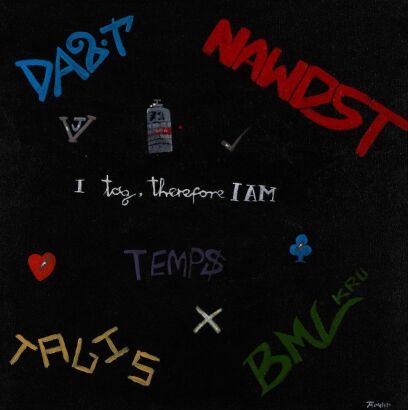 DAST
NAWDST
I tag, therefore I AM
TEMP$
KRU
TAGIS
BMC